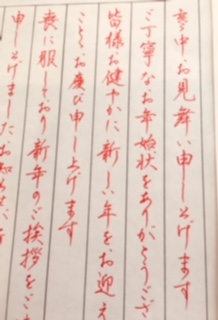 寒中お見舞い申し上げます
ご丁寧なお年始状をありがとうござ
皆様お健やかに新しい年をお迎え
ことお慶び申し上げます
喪に服しており新年のご挨拶をご
申し上げましたお知らせ